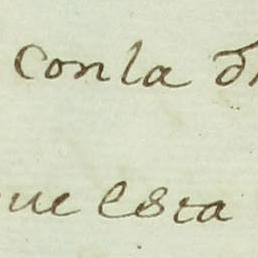 conla
esta